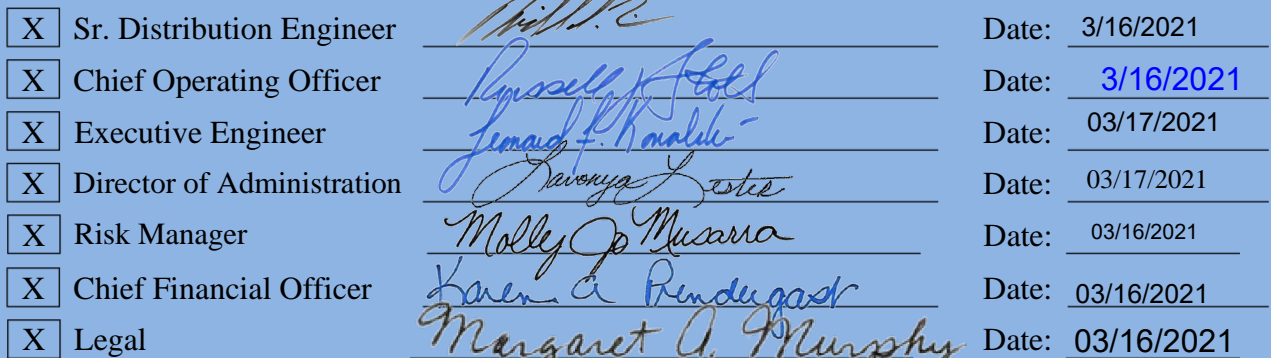 X Sr. Distribution Engineer Date: 3/16/2021
X Chief Operating Officer Russell J Stoll Date: 3/16/2021
X Executive Engineer Leonard F. Kowalski Date: 03/17/2021
X Director of Administration Lavonya Lester Date: 03/17/2021
X Risk Manager Molly Jo Musarra Date: 03/16/2021
X Chief Financial Officer Karen A Prendergast Date: 03/16/2021
X Legal Margaret A. Murphy Date: 03/16/2021